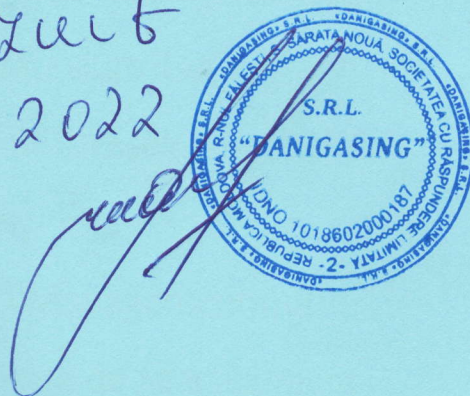 2022
«DANIGASING» S.R.L. «DANIGASING» S.R.L. «DANIGASING» S.R.L. «DANIGASING» S.R.L.
REPUBLICA MOLDOVA. R-NUL FĂLEȘTI, S. SĂRATA NOUĂ. SOCIETATEA CU RĂSPUNDERE LIMITATĂ
S.R.L.
"DANIGASING"
IDNO 1018602000187
-2-